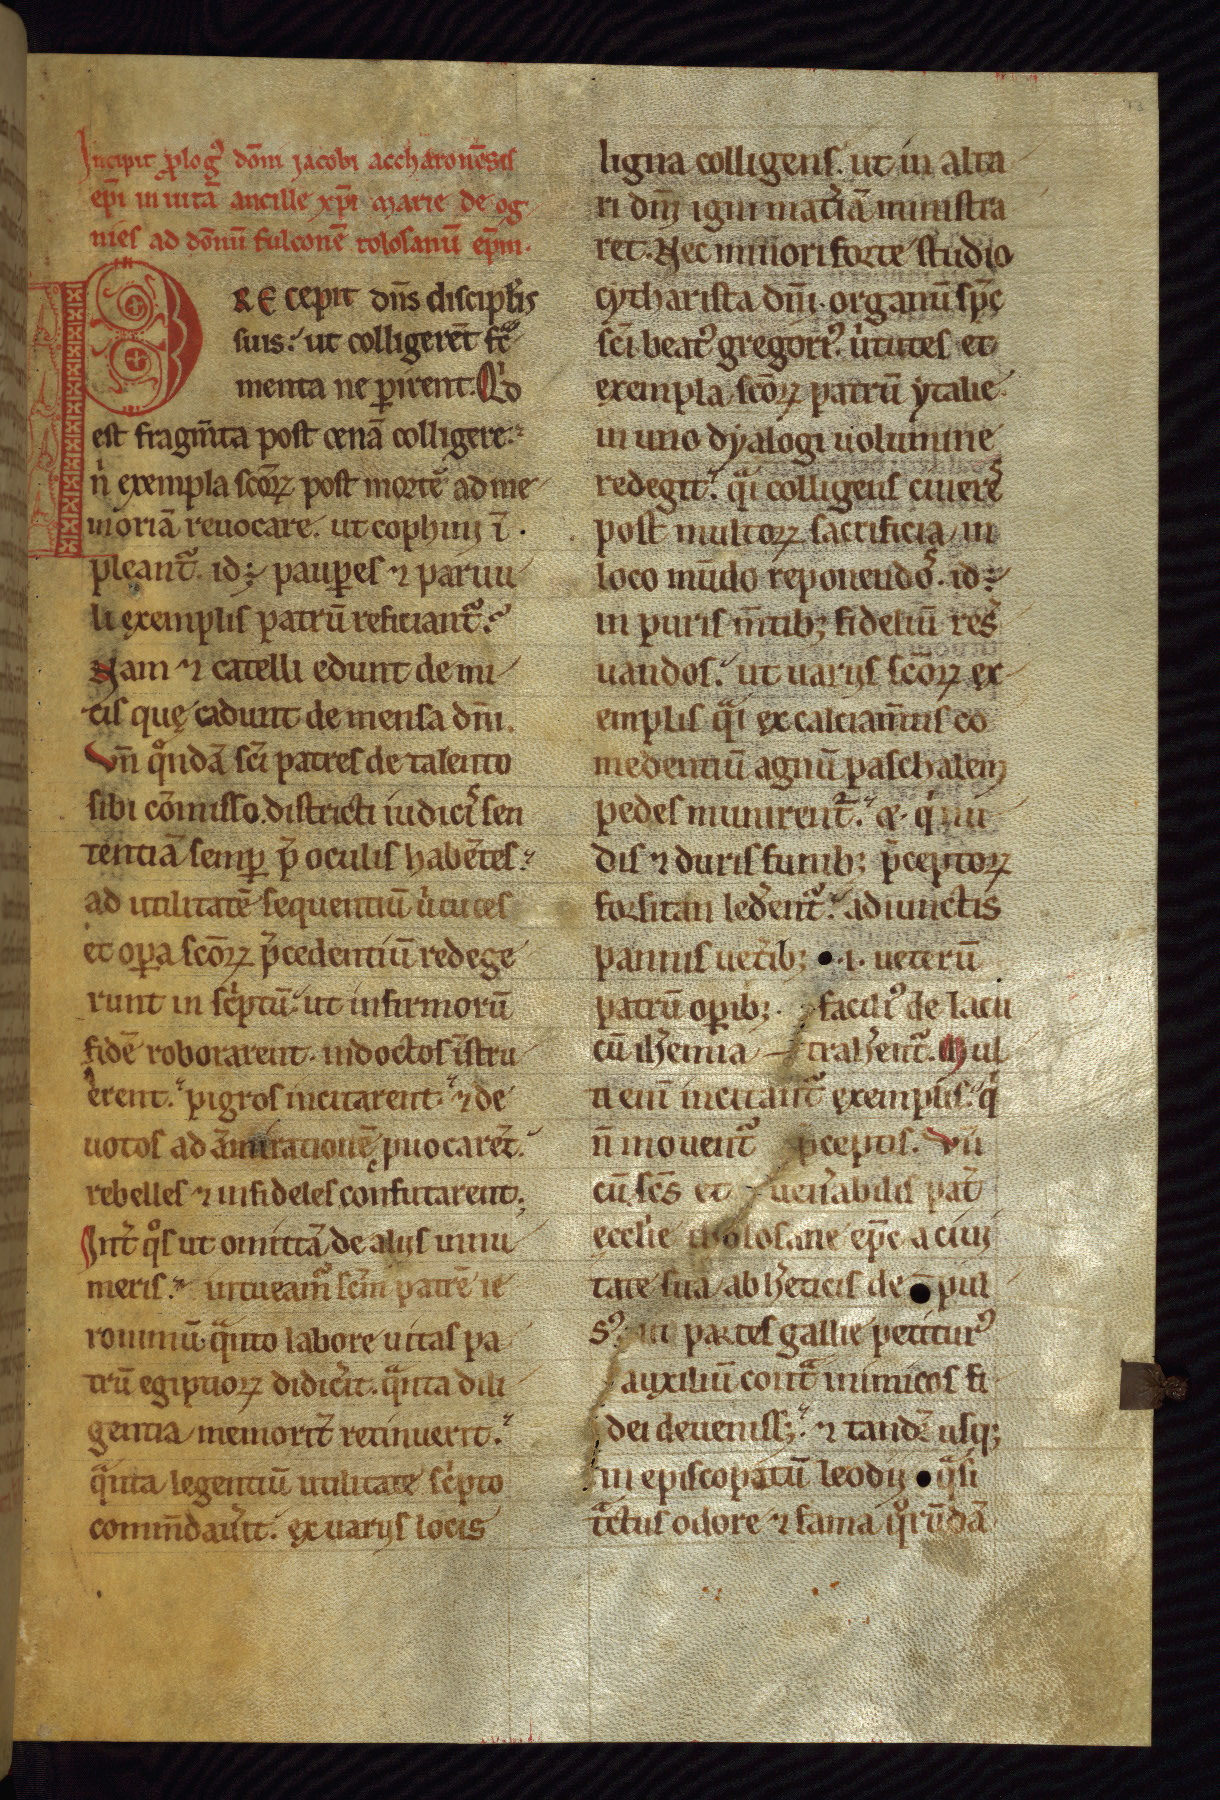 Incipit ꝓlogꝰ dōm̄i jacobi accharonēsis
ep̄i in uitā ancille xp̄i marie de og
nies ad dōnū fulconē tolosanū ep̄m.
PREcepit dn̄s discipl̓is
suis: ut colligerēt fͣg
menta ne ꝑirent. Qͥd
est fragm̄ta post cenā colligere:
n̓ exempla scōꝝ post mortē ad me
moriā reuocare. ut cophinij ī.
pleantᷣ. id; paupes ⁊ paruu
li exemplis patrū reficiantᷣ.
Nam ⁊ catelli edunt de mi
cis quę cadunt de mensa dn̄i.
Vn̄ qͦndā sc̄i patres de talento
sibi cōmisso. districti iudicꝰ sen
tentiā semꝑ p̄ oculis habētes:
ad utilitatē sequentiū u̓tutes
et oꝑa scōꝝ p̄cedentiū redege
runt in sc̓ptū. ut infirmorū
fidē roborarent. indoctos īstru
erent. pigros incitarent. ⁊ de
uotos ad āmirationē ꝓuocarēt.
rebelles ⁊ infideles confutarent.
Int̓ qͦs ut omittā de alijs innu
meris. uitueamᷣ sc̄m patrē ie
ronimū. qͣnto labore uitas pa
trū egiptioꝝ didic̓it. qͣnta dili
gentia memorit̓ retinuerit.
qͣnta legentiū utilitate sc̓pto
comm̄dau̓it. ex uarijs locis
ligna colligens. ut in alta
ri dn̄j igni mat̓iā ministra
ret. Nec minori forte studio
cytharista dn̄i. organū sp̄c
sc̄i. beatꝰ gregoriꝰ. u̓tutes et
exempla scōꝝ patrū ytalie.
in uno dyalogi uolumine
redegit. qͣi colligens cinerēs
post multoꝝ sacrificia in
loco mūdo reponendoˢ. id;
in puris m̄tib; fideliū res̓
uandos. ut uarijs scoꝝ ex
emplis qͣi ex calciam̄tis co
medentiū agnū paschalem
pedes munirentᷣ. ⁊. qͥ nu
dis ⁊ duris funib; p̄ceptoꝝ
forsitan led̓entᷣ. adiunctis
pannis uet̓ib; .i. ueterū
patrū opib;. faciliꝰ de lacu
cū ih̓emia trah̓entᷣ. Mul
ti enī incitantᷣ exemplis. qͥ
n̄ mouentᷣ p̄ceptis. Vn̄
cū sc̄s et uen̓abilis pat̓
ecc̄lie tholosane ep̄c a ciui
tate sua ab h̓eticis de pul
sꝰ. in partes gallie petiturꝰ
auxiliū contͣ inimicos fi
dei deueniss;. ⁊ tandē usq;
in episcopatū leodij qͣsi
tͣctus odore ⁊ fama qͦrūdā